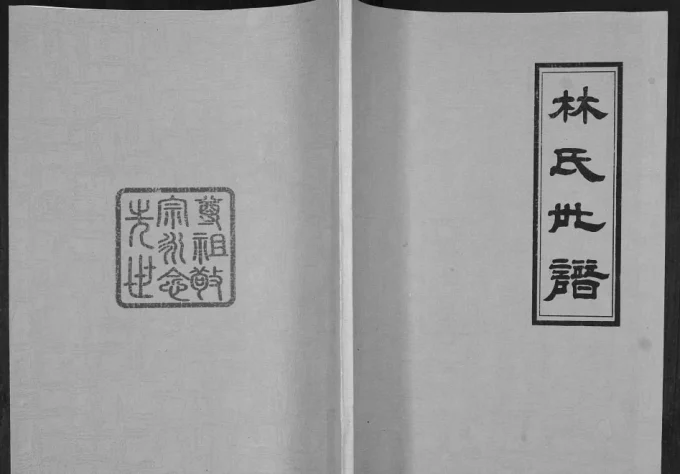 林氏世譜
尊祖敬
宗永念
先世